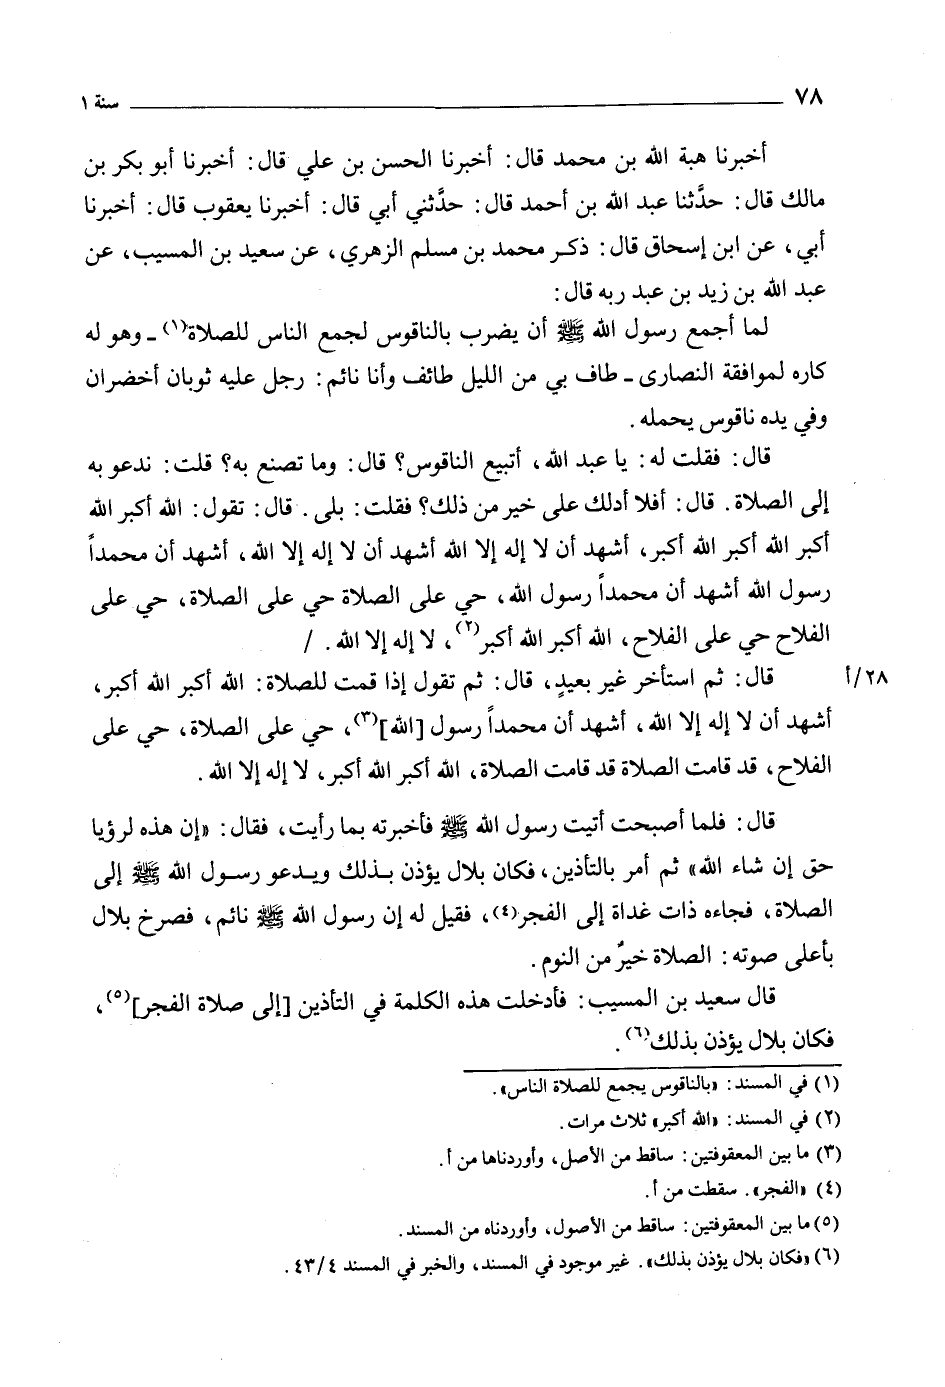 ٧٨ سنة ١
أخبرنا هبة الله بن محمد قال: أخبرنا الحسن بن علي قال: أخبرنا أبو بكر بن
مالك قال: حدَّثنا عبد الله بن أحمد قال: حدَّثني أبي قال: أخبرنا يعقوب قال: أخبرنا
أبي، عن ابن إسحاق قال: ذكر محمد بن مسلم الزهري، عن سعيد بن المسيب، عن
عبد الله بن زيد بن عبد ربه قال:
لما أجمع رسول الله ﷺ أن يضرب بالناقوس لجمع الناس للصلاة(١) ـ وهو له
كاره لموافقة النصارى ـ طاف بي من الليل طائف وأنا نائم: رجل عليه ثوبان أخضران
وفي يده ناقوس يحمله.
قال: فقلت له: يا عبد الله، أتبيع الناقوس؟ قال: وما تصنع به؟ قلت: ندعو به
إلى الصلاة. قال: أفلا أدلك على خير من ذلك؟ فقلت: بلى. قال: تقول: الله أكبر الله
أكبر الله أكبر الله أكبر، أشهد أن لا إله إلا الله أشهد أن لا إله إلا الله، أشهد أن محمداً
رسول الله أشهد أن محمداً رسول الله، حي على الصلاة حي على الصلاة، حي على
الفلاح حي على الفلاح، الله أكبر الله أكبر(٢)، لا إله إلا الله. /
٢٨/أ قال: ثم استأخر غير بعيدٍ، قال: ثم تقول إذا قمت للصلاة: الله أكبر الله أكبر،
أشهد أن لا إله إلا الله، أشهد أن محمداً رسول [الله](٣)، حي على الصلاة، حي على
الفلاح، قد قامت الصلاة قد قامت الصلاة، الله أكبر الله أكبر، لا إله إلا الله.
قال: فلما أصبحت أتيت رسول الله ﷺ فأخبرته بما رأيت، فقال: «إن هذه لرؤيا
حق إن شاء الله» ثم أمر بالتأذين، فكان بلال يؤذن بذلك ويدعو رسول الله ﷺ إلى
الصلاة، فجاءه ذات غداة إلى الفجر(٤)، فقيل له إن رسول الله ﷺ نائم، فصرخ بلال
بأعلى صوته: الصلاة خيرٌ من النوم.
قال سعيد بن المسيب: فأدخلت هذه الكلمة في التأذين [إلى صلاة الفجر](٥)،
فكان بلال يؤذن بذلك(٦).
(١) في المسند: «بالناقوس يجمع للصلاة الناس».
(٢) في المسند: «الله أكبر» ثلاث مرات.
(٣) ما بين المعقوفتين: ساقط من الأصل، وأوردناها من أ.
(٤) «الفجر». سقطت من أ.
(٥) ما بين المعقوفتين: ساقط من الأصول، وأوردناه من المسند.
(٦) «فكان بلال يؤذن بذلك». غير موجود في المسند، والخبر في المسند ٤/ ٤٣.